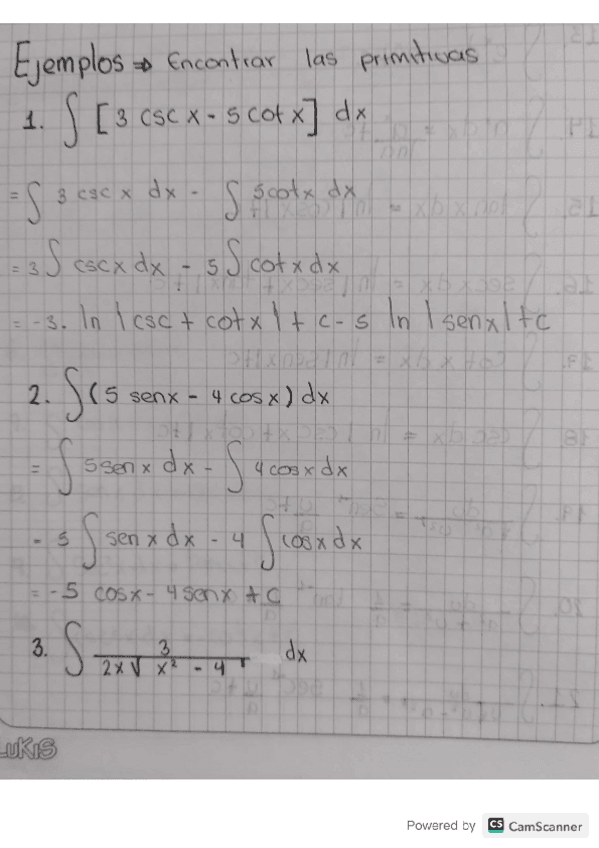 Ejemplos ⇒ Encontrar las primitivas
1. ∫ [3 csc x - 5 cot x] dx
= ∫ 3 csc x dx - ∫ 5cotx dx
= 3 ∫ cscx dx - 5 ∫ cotx dx
= -3. ln |csc + cotx| + c - 5 ln |senx| + c
2. ∫ (5 senx - 4 cosx) dx
= ∫ 5sen x dx - ∫ 4 cosx dx
= 5 ∫ sen x dx - 4 ∫ cosx dx
= -5 cosx - 4senx + C
3. ∫ 3 / 2x √ x² - 4 dx
LUKIS
Powered by CS CamScanner